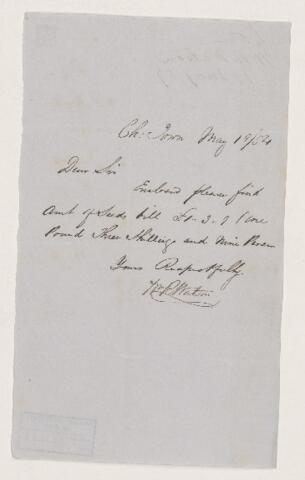 Ch: Town May 19/54
Dear Sir
Enclosed please find
Amt of Seeds bill £1. 3. 9 (one
Pound Three Shillings and Nine Pence
Yours Respectfully
Watson